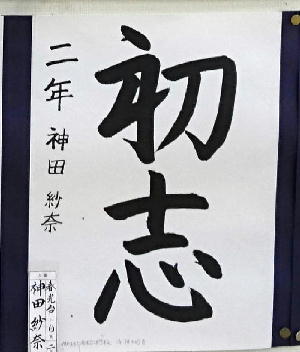 初志
二年 神田 紗奈
春光台
神田 紗奈